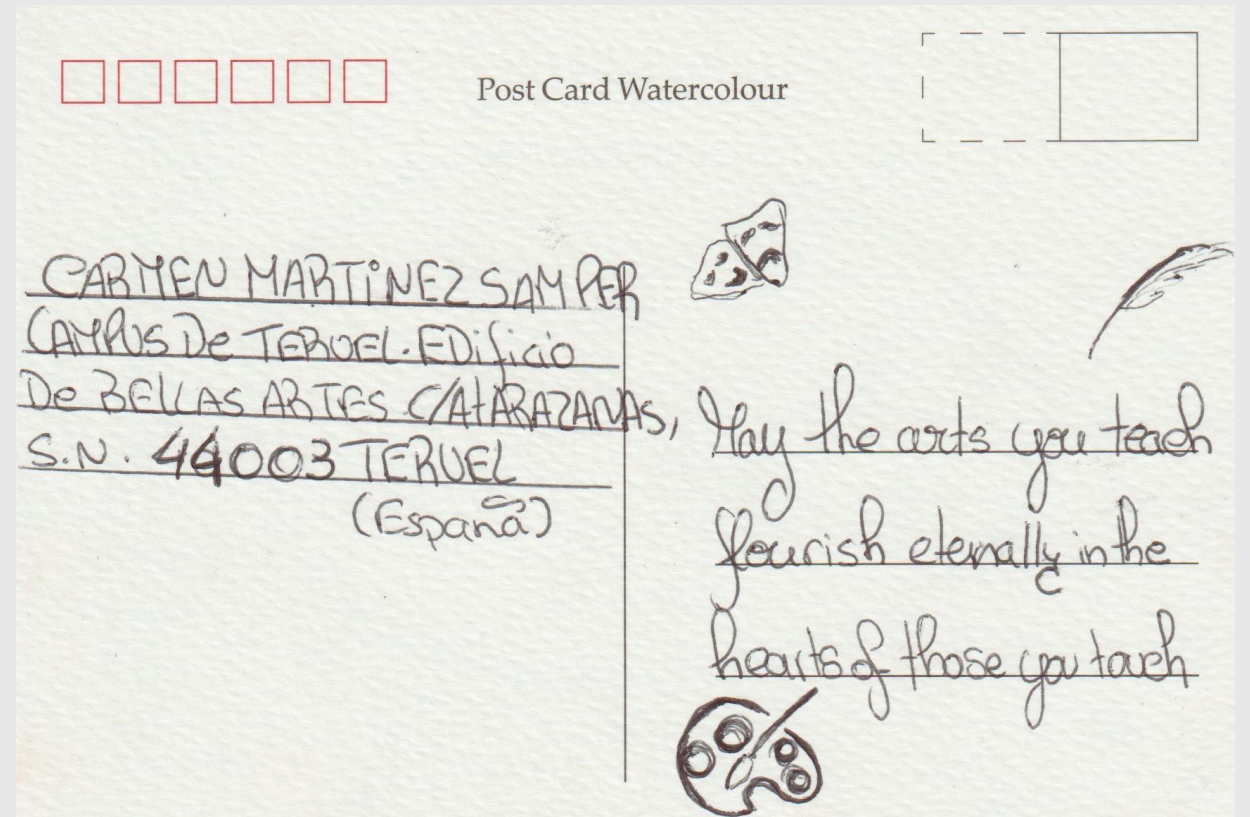 Post Card Watercolour
CARMEN MARTiNEZ SAMPER
CAMPUS De TERUEL. EDificio
De BELLAS ARTES C/AtARAZANAS,
S.N. 44003 TERUEL
(España)
May the arts you teach
flourish eternally in the
hearts of those you touch